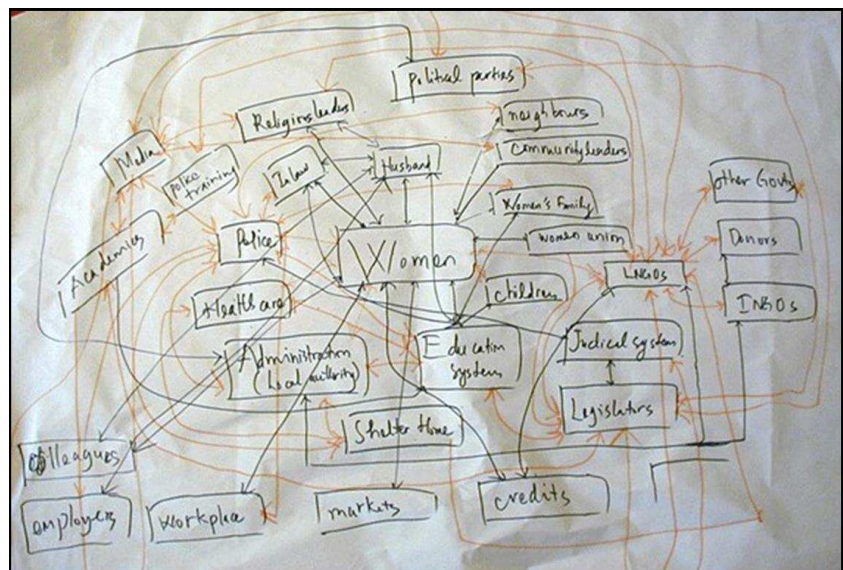 Political parties
Religious leaders
neighbours
Community leaders
Media
Police
training
In law
Husband
other Govts
Women's Family
Academics
Police
Women
women union
Donors
LNGOs
Healthcare
children
INGOs
Administration
(Local authority)
Education
system
Judical system
Legislators
Shelter Home
Colleagues
employers
workplace
markets
credits